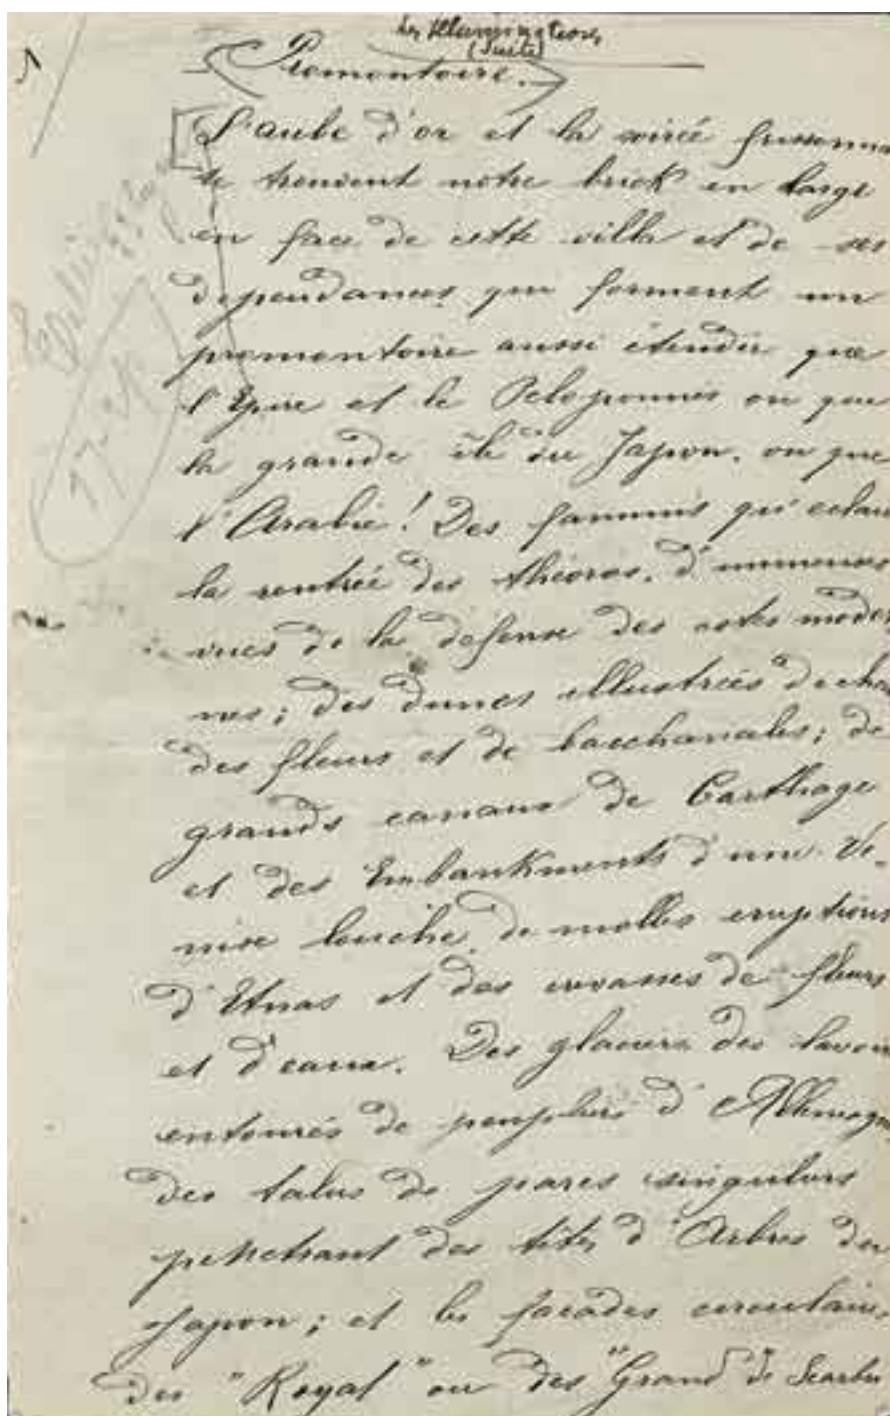 Les Illuminations
(Suite)
Promontoire.
L'aube d'or et la soirée frissonna
te trouvent notre brick en large
en face de cette villa et de ses
dépendances qui forment un
promontoire aussi étendu que
l'Epire et le Péloponnès ou que
la grande île du Japon, ou que
l'Arabie! Des fanums qu'éclair
la rentrée des théories, d'immenses
vues de la défense des côtes moder
nes; des dunes illustrées de cha
des fleurs et de bacchanales; de
grands canaux de Carthage
et des Embankments d'une Ve-
nise louche, de molles eruptions
d'Etnas et des crevasses de fleurs
et d'eaux. Des glaciers des lavoir
entourés de peupliers d'Allemagn
des talus de parcs singuliers
penchant des têtes d'Arbres du
Japon; et les façades circulaires
des "Royal" ou des "Grand" de Scarbro